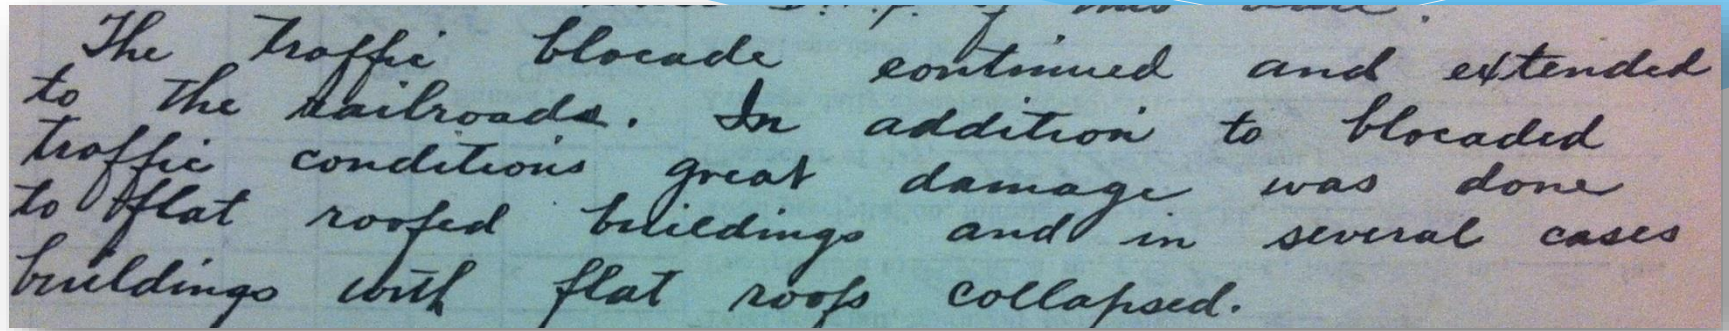 The traffic blocade continued and extended
to the railroads. In addition to blocaded
traffic conditions great damage was done
to flat roofed buildings and in several cases
buildings with flat roofs collapsed.